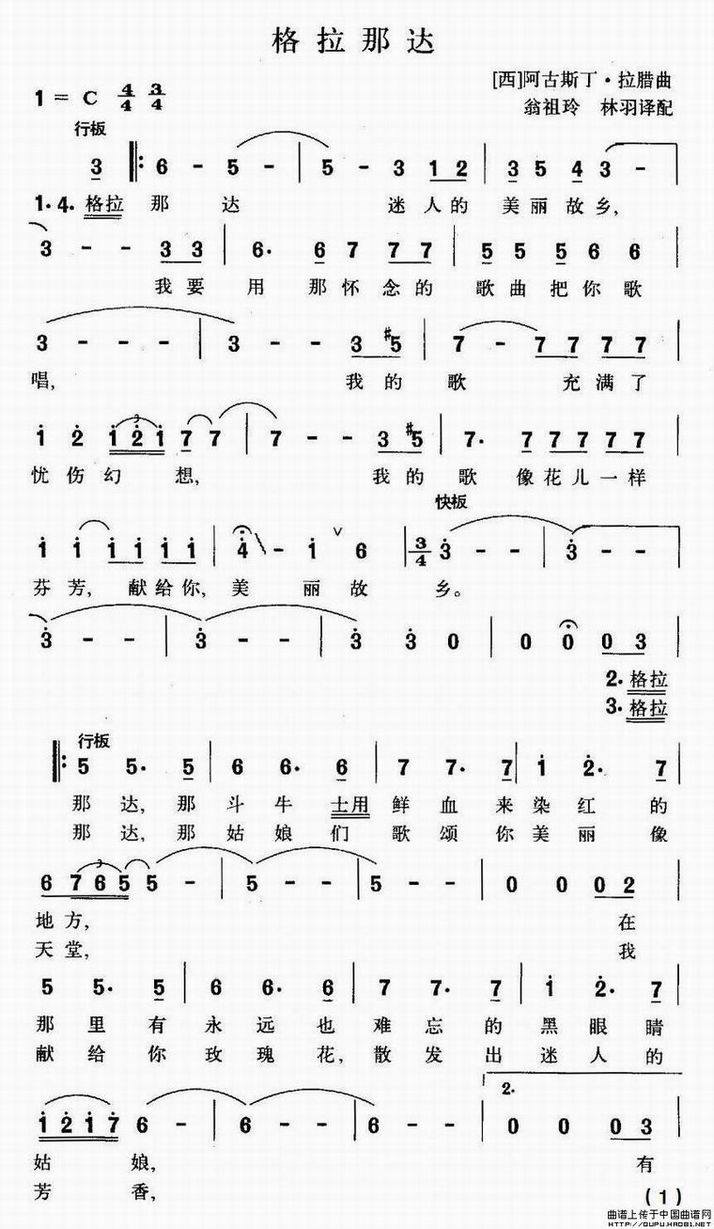 格拉那达
[西]阿古斯丁·拉腊曲
1 = C 4/4 3/4
翁祖玲 林羽译配
行板
3 6 - 5 - 5 - 3 1 2 3 5 4 3 -
1·4· 格拉 那 达 迷人的 美丽故乡,
3 - - 3 3 6· 6 7 7 7 5 5 5 6 6
我要 用 那怀念的 歌曲把你歌
3 - - 3 - - 3 #5 7 - 7 7 7 7
唱, 我的 歌 充满了
1 2 3 1 2 1 7 7 7 - - 3 #5 7· 7 7 7 7 7
忧伤幻 想, 我的 歌 像花儿一样
快板
1 1 1 1 1 1 4 - 1 ∨ 6 3/4 3 - - 3 - -
芬芳, 献给你, 美 丽故 乡。
3 - - 3 - - 3 3 0 0 0 0 3
2·格拉
3·格拉
行板
5 5· 5 6 6· 6 7 7· 7 1 2· 7
那达, 那 斗牛 士用 鲜血 来 染红 的
那达, 那 姑娘 们 歌颂 你 美丽 像
3
6 7 6 5 5 - 5 - - 5 - - 0 0 0 2
地方, 在
天堂, 我
5 5· 5 6 6· 6 7 7· 7 1 2· 7
那里有 永远也 难忘的 黑眼睛
献给你 玫瑰花, 散发出 迷人的
2.
1 2 1 7 6 - 6 - - 6 - - 0 0 0 3
姑 娘, 有
芳 香,
(1)
曲谱上传于中国曲谱网
HTTP://QUPU.YAO81.NET